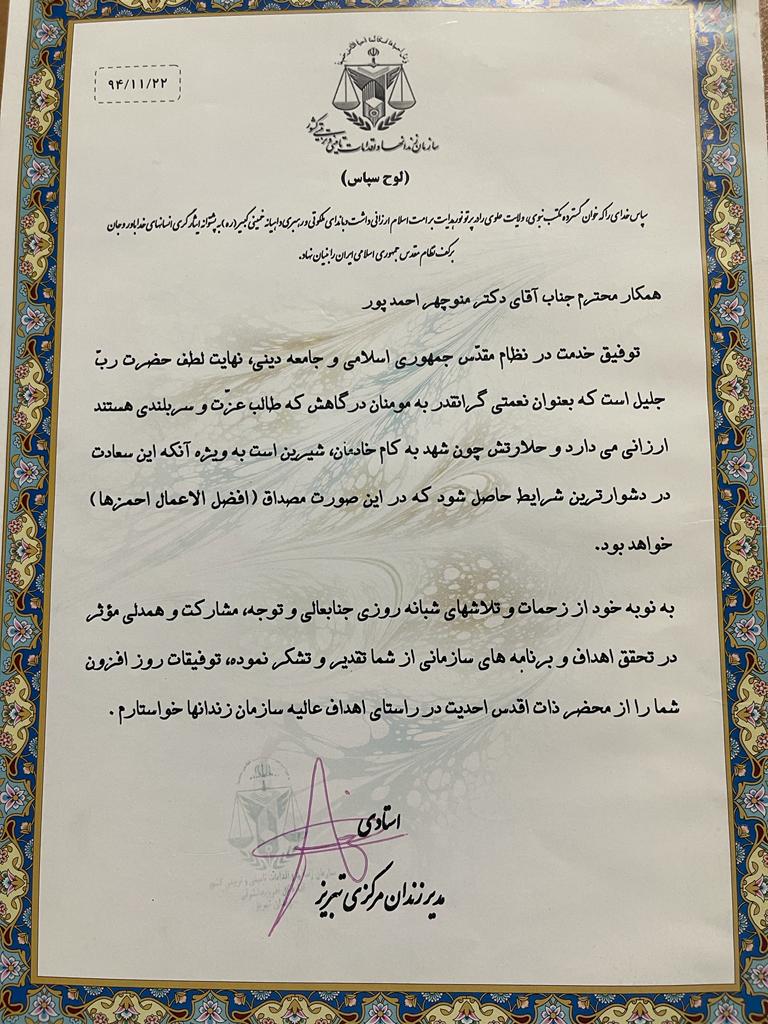 ۹۴/۱۱/۲۲
سازمان زندانها و اقدامات تامینی و تربیتی کشور
(لوح سپاس)
سپاس خدای را که خوان گسترده مکتب نبوی، ولایت علوی را در پرتو نور هدایت بر امت اسلام ارزانی داشت و با ندای ملکوتی و رهبری داهیانه خمینی کبیر(ره)، به پشتوانه ایثارگری انسانهای خداباور و جان
برکف نظام مقدس جمهوری اسلامی ایران را بنیان نهاد.
همکار محترم جناب آقای دکتر منوچهر احمدپور
توفیق خدمت در نظام مقدّس جمهوری اسلامی و جامعه دینی، نهایت لطف حضرت ربّ
جلیل است که بعنوان نعمتی گرانقدر به مومنان درگاهش که طالب عزّت و سربلندی هستند
ارزانی می دارد و حلاوتش چون شهد به کام خادمان، شیرین است به ویژه آنکه این سعادت
در دشوارترین شرایط حاصل شود که در این صورت مصداق (افضل الاعمال احمزها)
خواهد بود.
به نوبه خود از زحمات و تلاشهای شبانه روزی جنابعالی و توجه، مشارکت و همدلی مؤثر
در تحقق اهداف و برنامه های سازمانی از شما تقدیر و تشکر نموده، توفیقات روز افزون
شما را از محضر ذات اقدس احدیت در راستای اهداف عالیه سازمان زندانها خواستارم.
استادی
مدیر زندان مرکزی تبریز